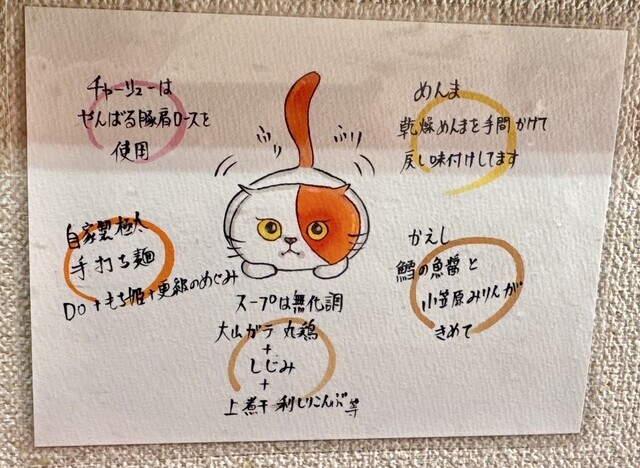 チャーシューは
やんばる豚肩ロースを
使用
めんま
乾燥めんまを手間かけて
戻し味付けしてます
ぷり
ぷり
自家製極太
手打ち麺
DO+もち姫+更級のめぐみ
かえし
鱈の魚醤と
小笠原みりんが
きめて
スープは無化調
大山ガラ 丸鶏
+
しじみ
+
上煮干 利しりこんぶ等